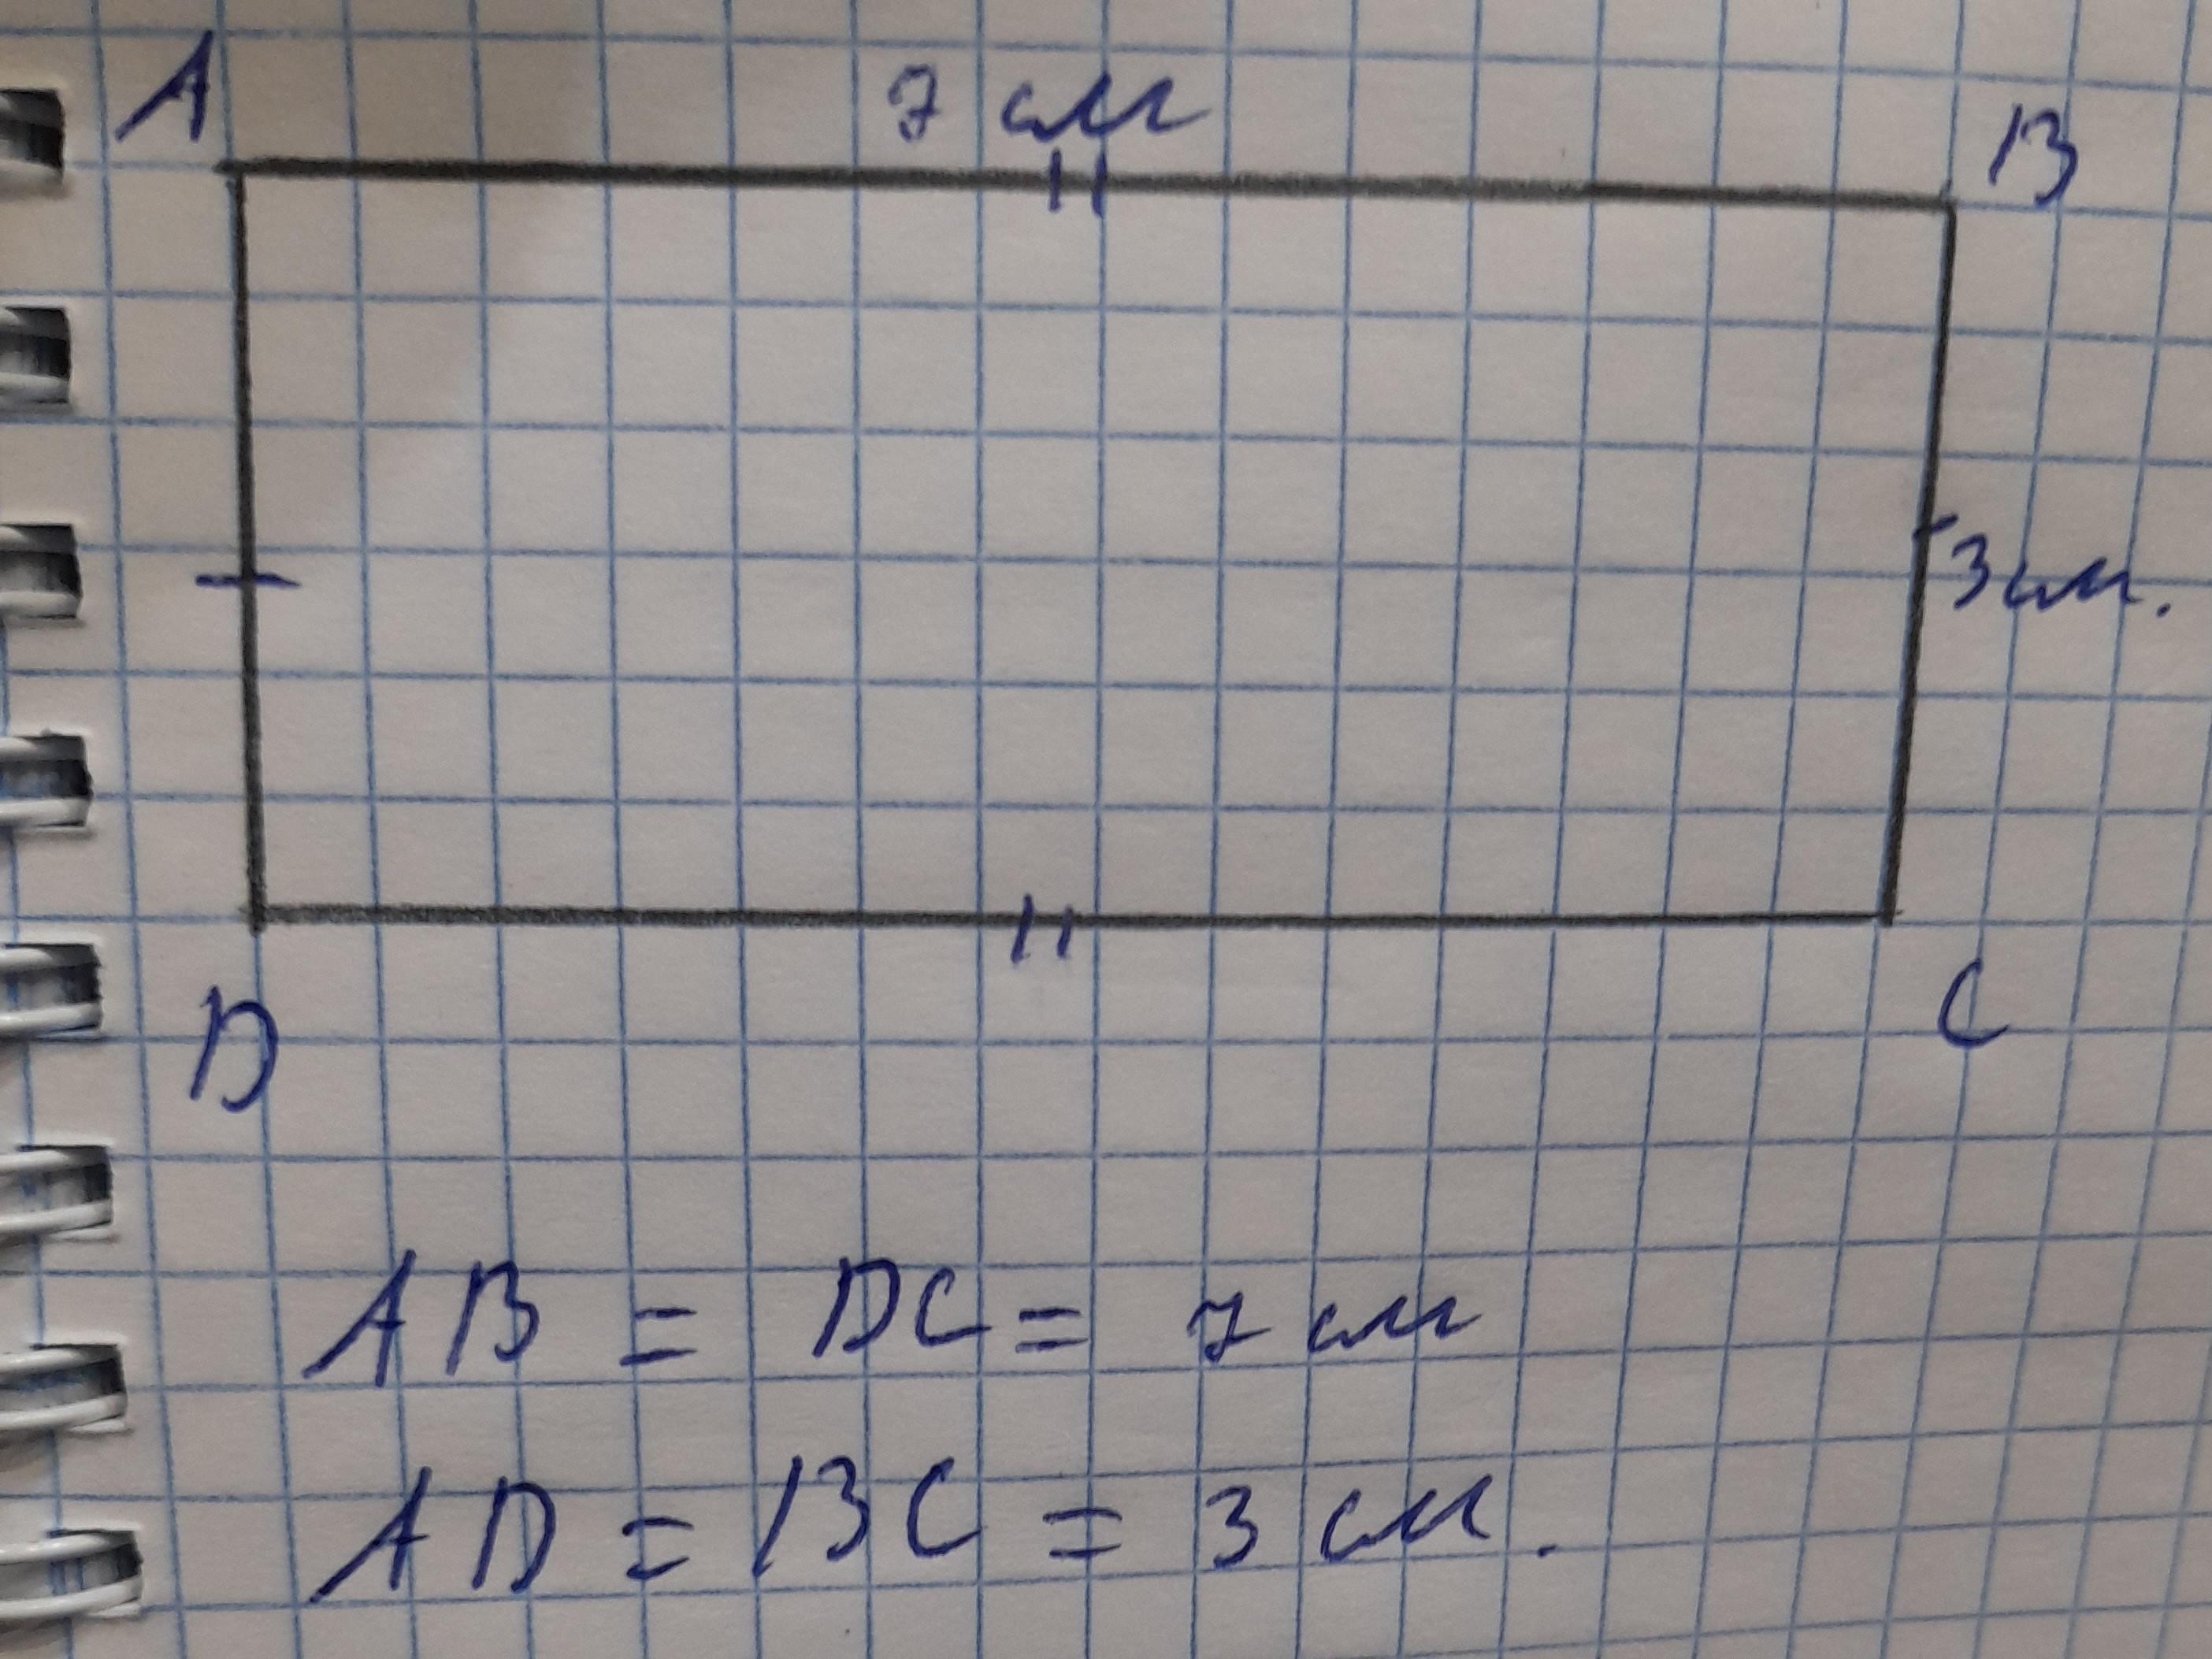 A
7 см
B
3 см.
D
C
AB = DC = 7 см
AD = BC = 3 см.